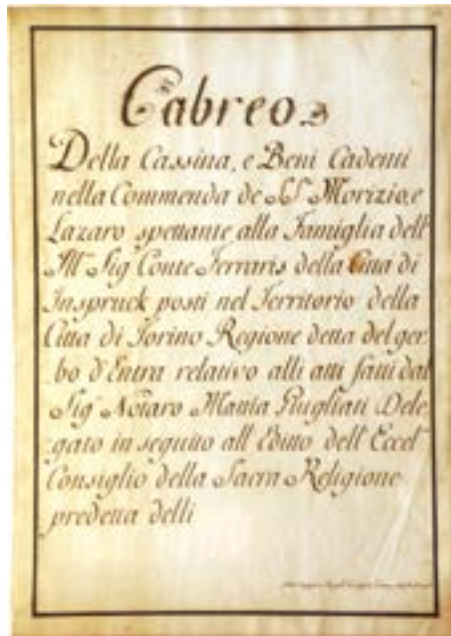 Cabreo
Della Cassina, e Beni Cadenti
nella Commenda de SS. Morizio, e
Lazaro spettante alla Famiglia dell'
Ill. Sig. Conte Ferraris della Citta di
Inspruck posti nel Territorio della
Citta di Torino Regione detta del ger
bo d'Entra relativo alli atti fatti dal
Sig. Notaro Mattia Giugliati Dele
gato in seguito all Editto dell' Eccel
Consiglio della Sacra Religione
predetta delli